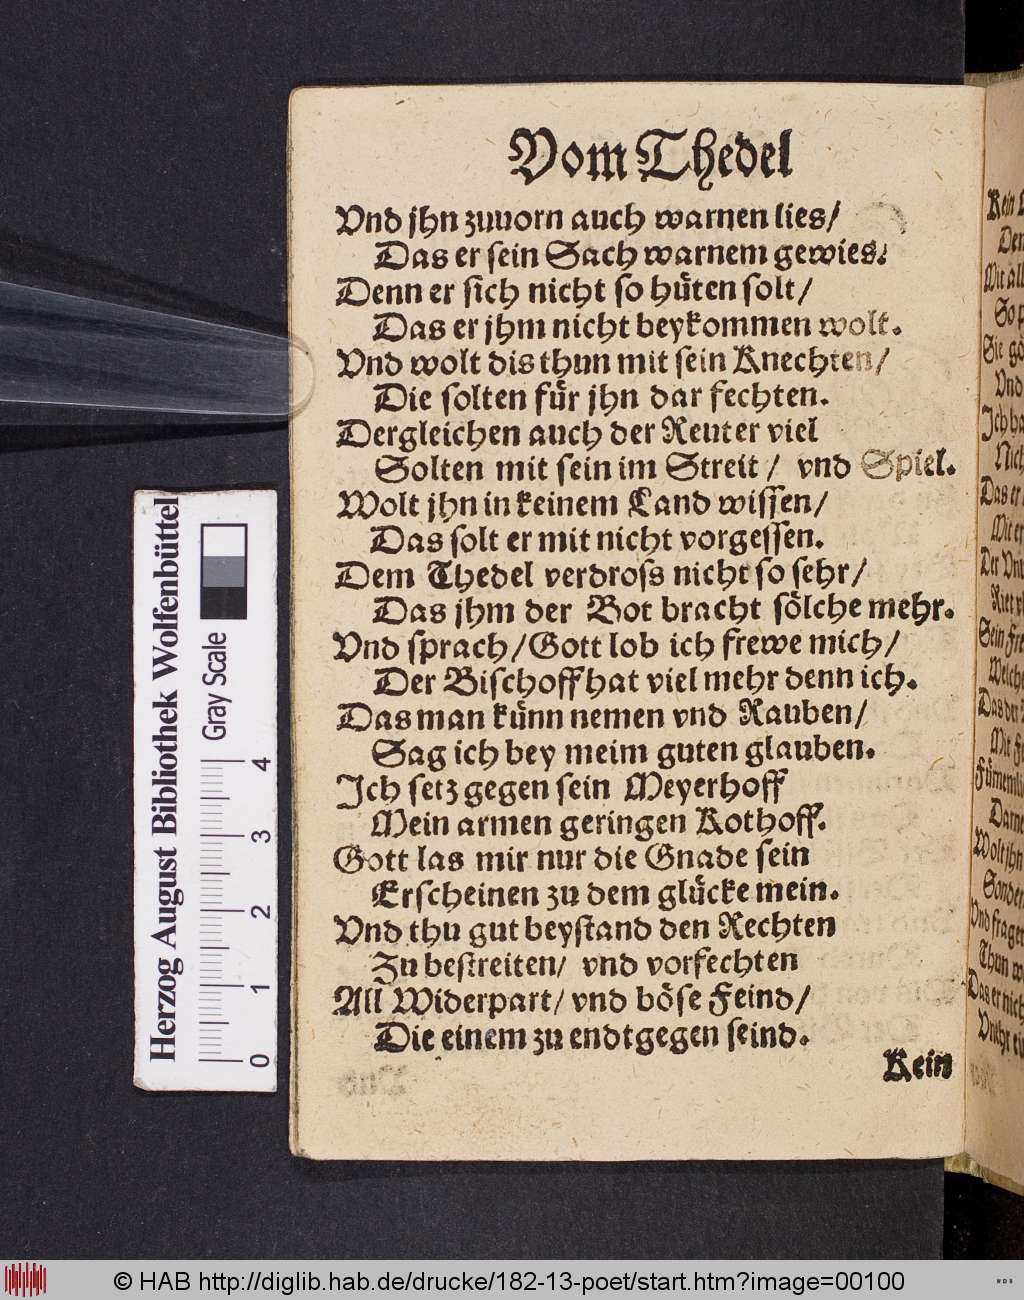 Vom Thedel
Vnd jhn zuuorn auch warnen lies/
Das er sein Sach warnem gewies.
Denn er sich nicht so hüten solt/
Das er jhm nicht beykommen wolt.
Vnd wolt dis thun mit sein Knechten/
Die solten für jhn dar fechten.
Dergleichen auch der Reuter viel
Solten mit sein im Streit / vnd Spiel.
Wolt jhn in keinem Land wissen/
Das solt er mit nicht vorgessen.
Dem Thedel verdross nicht so sehr/
Das jhm der Bot bracht sölche mehr.
Vnd sprach/ Gott lob ich frewe mich/
Der Bischoff hat viel mehr denn ich.
Das man künn nemen vnd Rauben/
Sag ich bey meim guten glauben.
Ich setz gegen sein Meyerhoff
Mein armen geringen Kothoff.
Gott las mir nur die Gnade sein
Erscheinen zu dem glücke mein.
Vnd thu gut beystand den Rechten
Zu bestreiten/ vnd vorfechten
All Widerpart/ vnd böse Feind/
Die einem zu endtgegen seind.
Kein
Kein
Den
Mit all
So
Sie
Vnd
Ich
Das er
Mit
Der
Sein
Welche
Das der
Mit
Wolt jhn
Sonder
Vnd
Thun
Das er nich
Herzog August Bibliothek Wolfenbüttel
Gray Scale
0 1 2 3 4
© HAB http://diglib.hab.de/drucke/182-13-poet/start.htm?image=00100
WDB